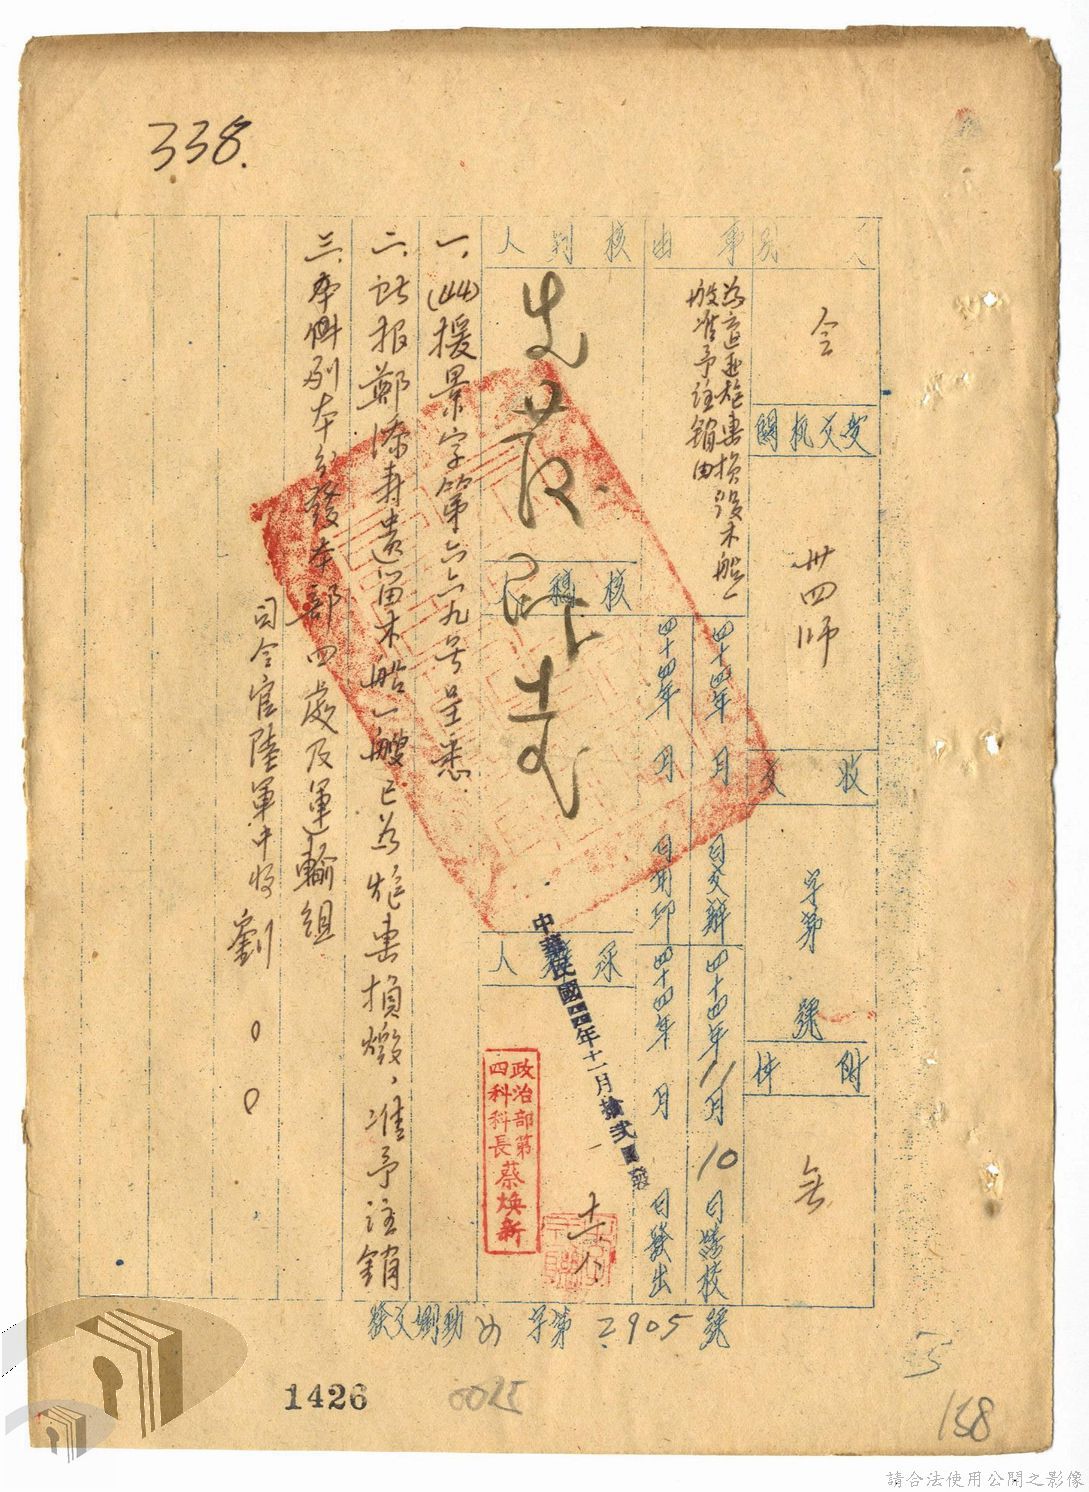 338.
文別
令
受文机関
卅四師
收文
字第
號
附件
無
事由
為遭匪炮擊損毀木船一
艘准予註銷由
四十四年 月 日交辦
四十四年11月10日繕校
四十四年 月 日用印
四十四年 月 日發出
核判人
核稿人
承辦人
中華民國四四年十一月拾弍日發
政治部第
四科科長蔡煥新
一、(44)援景字第六六九号呈悉
二、所报鄭添寿遺留木船一艘已為炮击損燬，准予註銷
三、本件副本分發本部四處及運輸組
司令官陸軍中将劉○○
發文 字第2905號
1426
0025
138
請合法使用公開之影像